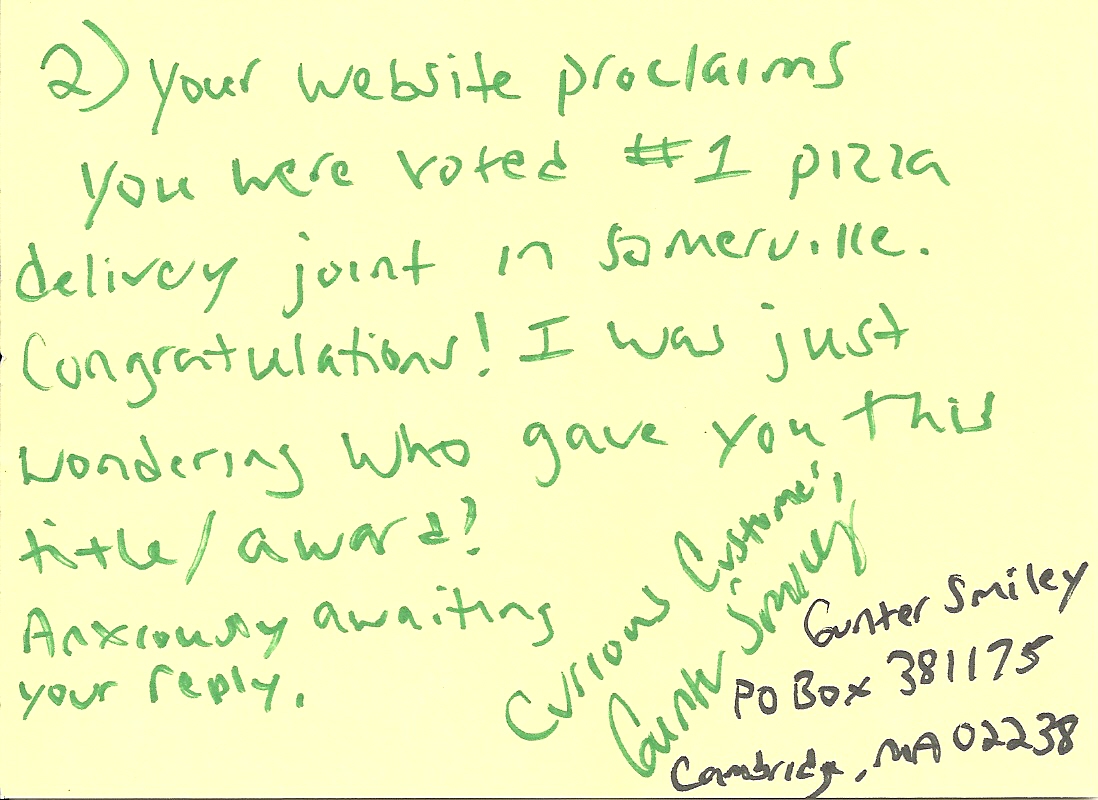 2) Your website proclaims
you were voted #1 pizza
delivery joint in Somerville.
Congratulations! I was just
wondering who gave you this
title/award?
Anxiously awaiting
your reply.
Curious Customer,
Gunter Smiley
Gunter Smiley
PO Box 381175
Cambridge, MA 02238